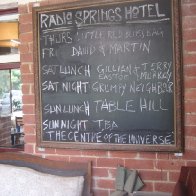 RADIO SPRINGS HOTEL
THURS LITTLE RED
FRI DAVID & MARTIN
SAT LUNCH GILLIAN & TERRY
EASTOE & MCARTHY
SAT NIGHT GRUMPY NEIGHBOR
SUN LUNCH TABLE HILL
SUN NIGHT TBA
THE CENTRE OF THE UNIVERSE